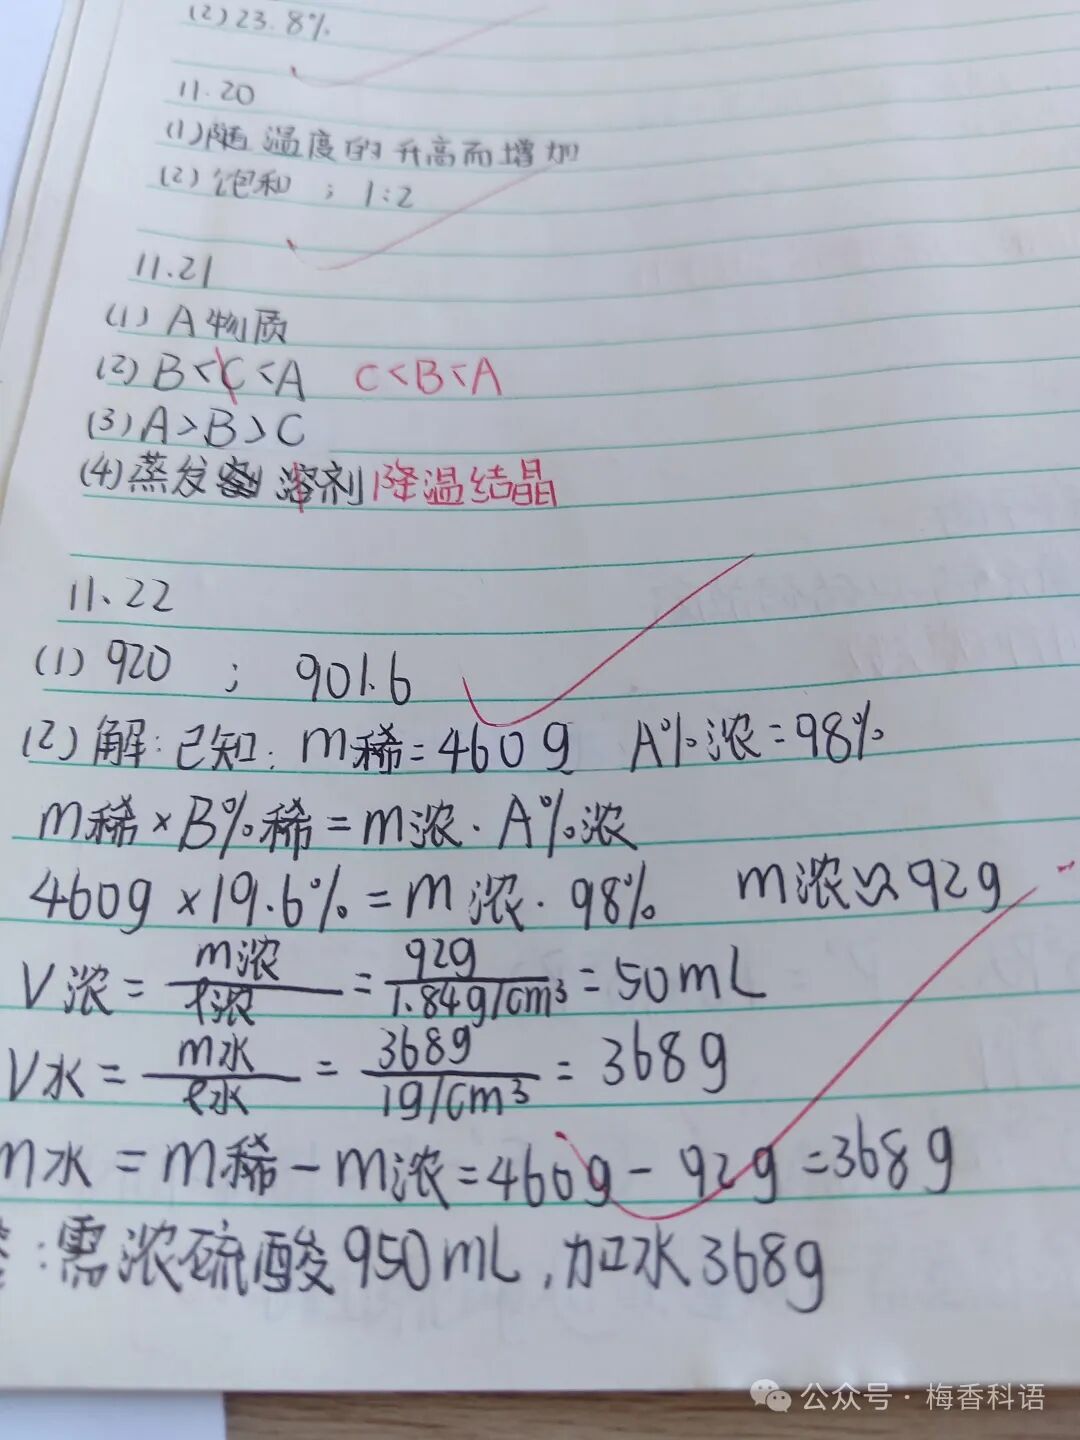 (2) 23.8%
11.20
(1) 随温度的升高而增加
(2) 饱和 ; 1:2
11.21
(1) A物质
(2) B<C<A C<B<A
(3) A>B>C
(4) 蒸发溶剂 降温结晶
11.22
(1) 920 ; 901.6
(2) 解:已知: m稀=460g A%浓=98%
m稀×B%稀=m浓·A%浓
460g×19.6%=m浓·98% m浓=92g
V浓=m浓/ρ浓=92g/1.84g/cm³=50mL
V水=m水/ρ水=368g/1g/cm³=368g
m水=m稀-m浓=460g-92g=368g
:需浓硫酸950mL,加水368g
公众号·梅香科语